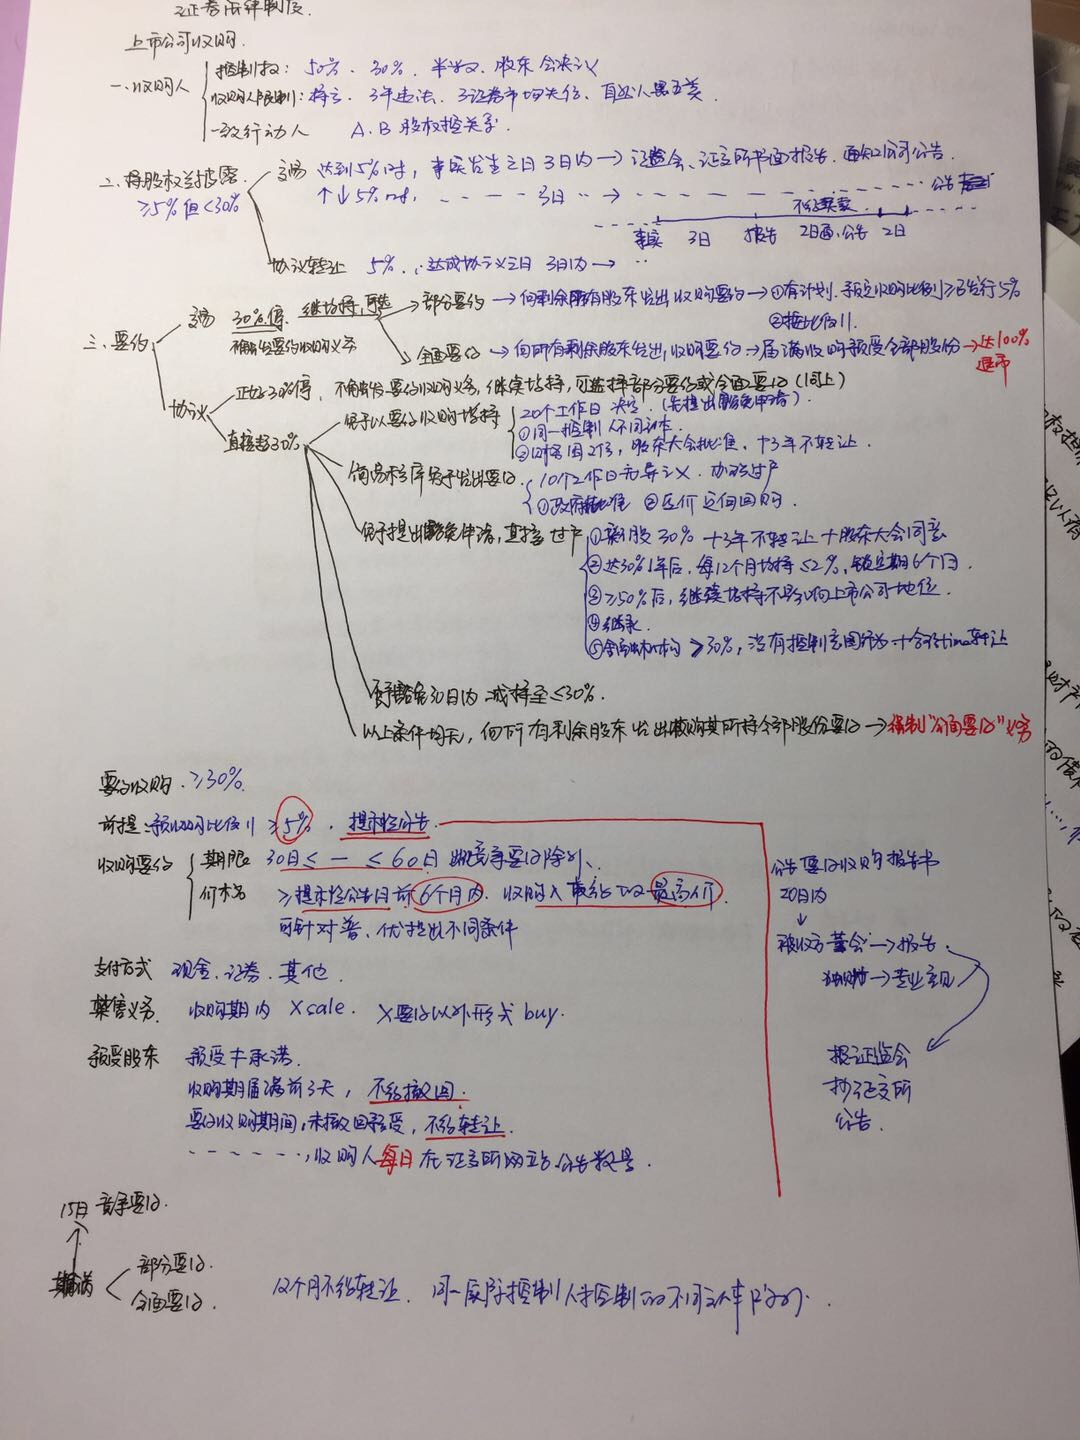 证券法律制度
上市公司收购
一、收购人
控制权：50%、30%、半数、股东会决议
收购人限制：3年违法、3证券市场失信、自然人
一致行动人 A、B股权控关系
二、持股权益披露
≥5%但<30%
交易 达到5%时，事实发生之日3日内→证监会、证交所书面报告、通知公司公告
↑↓5%时，- - - 3日 →
不得买卖
事实 3日 报告 2日通、公告 2日
协议转让 5%，达成协议之日3日内→ ‥
三、要约
交易 30%停，继增持，可选
不触发要约收购义务
部分要约→向剩余所有股东发出收购要约→①有计划，预定收购比例≥已发行5%
②按比例
全面要约→向所有剩余股东发出收购要约→届满收购预受全部股份→达100%
退市
协议
正好30%停，不触发要约收购义务，继续增持，可选择部分要约或全面要约(同上)
直接超30%
免于以要约收购增持
20个工作日决定(先提出豁免申请)
①同一控制人不同主体
②财务困难，股东大会批准，+3年不转让
简易程序免于发出要约
10个工作日无异议，办理过户
①政府批准 ②定价定向回购
免于提出豁免申请，直接过户
①新股30%+3年不转让+股东大会同意
②达30%1年后，每12个月增持≤2%，锁定期6个月
③≥50%后，继续增持不影响上市公司地位
④继承
⑤金融机构≥30%，没有控制意图行为+合理time转让
30日内减持至≤30%
以上条件均无，向所有剩余股东发出收购其所持全部股份要约→强制“全面要约”义务
要约收购 ≥30%
前提：预收购比例≥5%，提示性公告
收购要约
期限 30日≤ — ≤60日 出现竞争要约除外
价格 ≥提示性公告日前6个月内，收购人最高价
可针对普、优提出不同条件
公告要约收购报告书
20日内
↓
被收方董会→报告
独财→专业意见
报证监会
抄证交所
公告
支付方式 现金、证券、其他
禁售义务 收购期内×sale，×要约以外形式buy.
预受股东 预受≠承诺
收购期届满前3天，不得撤回
要约收购期间，未撤回预受，不得转让
- - - - - -，收购人每日在证交所网站公告数量
15日 竞争要约
期满
部分要约
全面要约
12个月不得转让，同一实际控制人控制的不同主体除外.